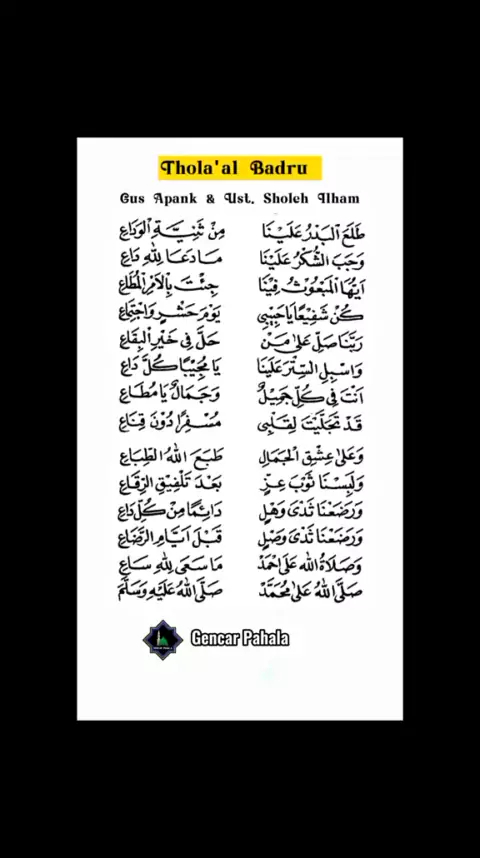 Thola'al Badru
Gus Apank & Ust. Sholeh Ilham
طَلَعَ الْبَدْرُ عَلَيْنَا مِنْ ثَنِيَّةِ الْوَدَاعِ
وَجَبَ الشُّكْرُ عَلَيْنَا مَا دَعَا لِلّٰهِ دَاعِ
اَيُّهَا الْمَبْعُوْثُ فِيْنَا جِئْتَ بِالْاَمْرِ الْمُطَاعِ
كُنْ شَفِيْعًا يَا حَبِيْبِى يَوْمَ حَشْرٍ وَاجْتِمَاعِ
رَبَّنَا صَلِّ عَلٰى مَنْ حَلَّ فِى خَيْرِ الْبِقَاعِ
وَاسْبِلِ السِّتْرَ عَلَيْنَا يَا مُجِيْبًا كُلَّ دَاعِ
اَنْتَ فِى كُلِّ جَمِيْلٌ وَجَمَالٌ يَا مُطَاعِ
قَدْ تَجَلَّيْتَ لِقَلْبِى مُسْفِرًا دُوْنَ قِنَاعِ
وَعَلٰى عِشْقِ الْجَمَالِ طَبَعَ اللهُ الطِّبَاعِ
وَلَبِسْنَا ثَوْبَ عِزٍّ بَعْدَ تَلْفِيْقِ الرِّقَاعِ
وَرَضَعْنَا ثَدْىَ وَهْلٍ دَائِمًا مِنْ كُلِّ دَاعِ
وَرَضَعْنَا ثَدْىَ وَصْلٍ قَبْلَ اَيَّامِ الرَّضَاعِ
وَصَلَاةُ الله عَلَى احْمَدْ مَا سَعَى لِلّٰهِ سَاعِ
صَلَّى اللهُ عَلٰى مُحَمَّدْ صَلَّى اللهُ عَلَيْهِ وَسَلَّمَ
Gencar Pahala